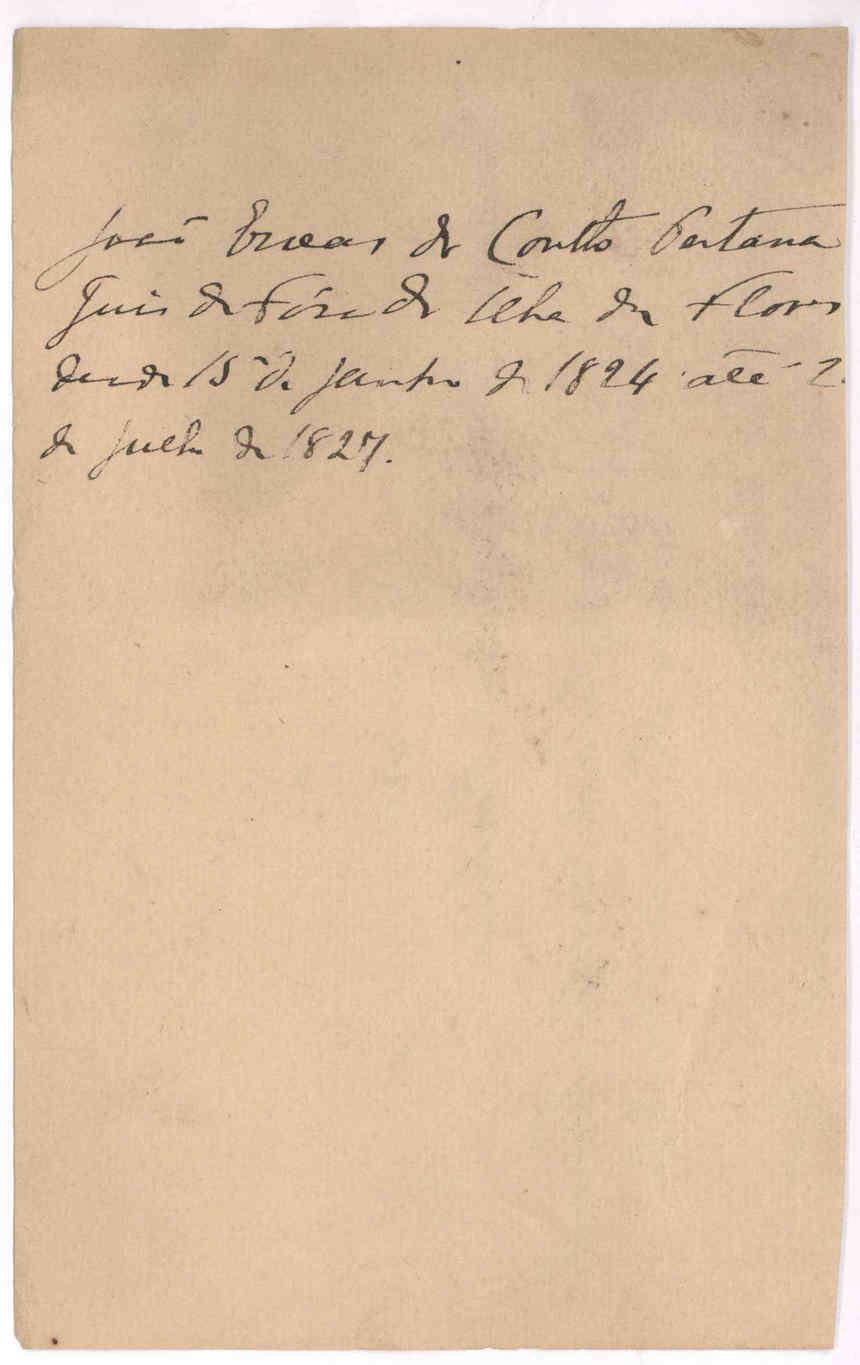 João Eneas do Coutto Pestana
Juis de Fóra da Ilha das Flores
desde 15 de Janeiro de 1824 até 2
de Julho de 1827.